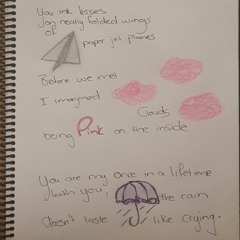 You ink kisses
on neatly folded wings
of
paper jet planes
Before we met
I imagined
Clouds
being Pink on the inside
You are my once in a lifetime
with you,
the rain
doesn't taste
like crying.